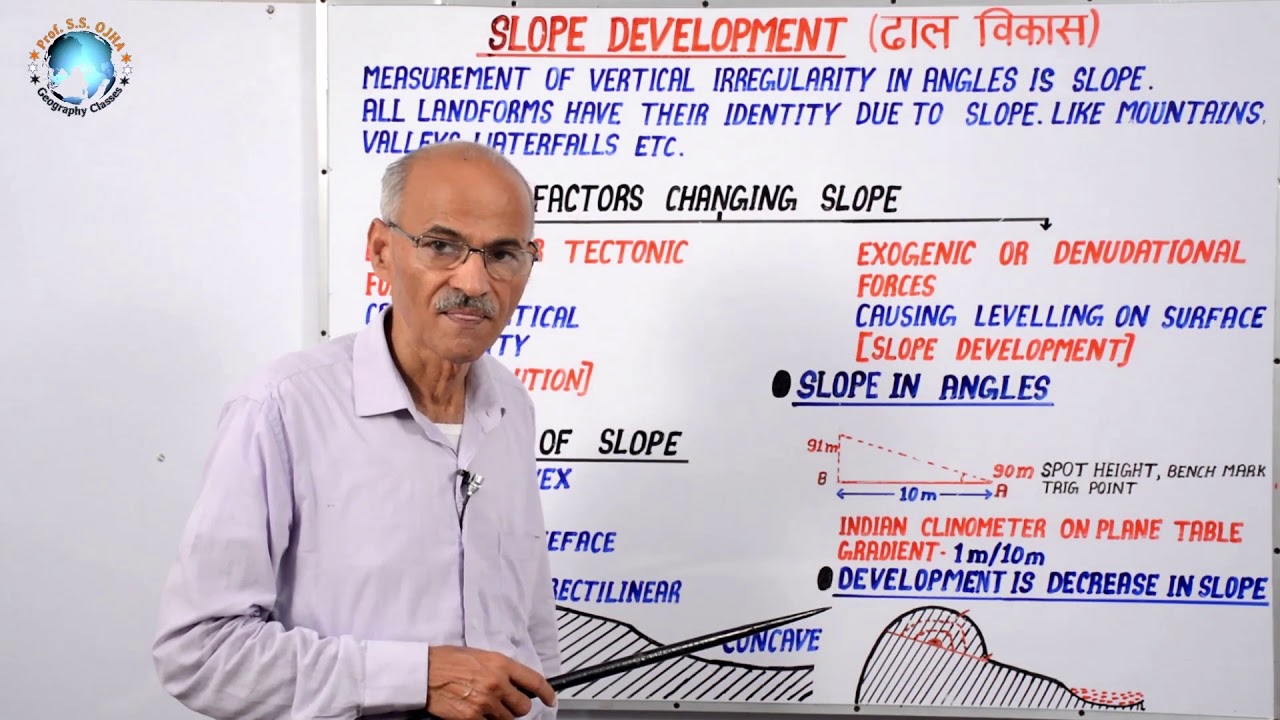 Prof. S.S. OJHA
Geography Classes
SLOPE DEVELOPMENT (ढाल विकास)
MEASUREMENT OF VERTICAL IRREGULARITY IN ANGLES IS SLOPE.
ALL LANDFORMS HAVE THEIR IDENTITY DUE TO SLOPE. LIKE MOUNTAINS.
VALLEYS WATERFALLS ETC.
FACTORS CHANGING SLOPE
TECTONIC
EXOGENIC OR DENUDATIONAL
FORCES
CAUSING LEVELLING ON SURFACE
[SLOPE DEVELOPMENT]
SLOPE IN ANGLES
91m
B
10m
90m
A
SPOT HEIGHT, BENCH MARK
TRIG POINT
INDIAN CLINOMETER ON PLANE TABLE
GRADIENT- 1m/10m
DEVELOPMENT IS DECREASE IN SLOPE
OF SLOPE
RECTILINEAR
CONCAVE